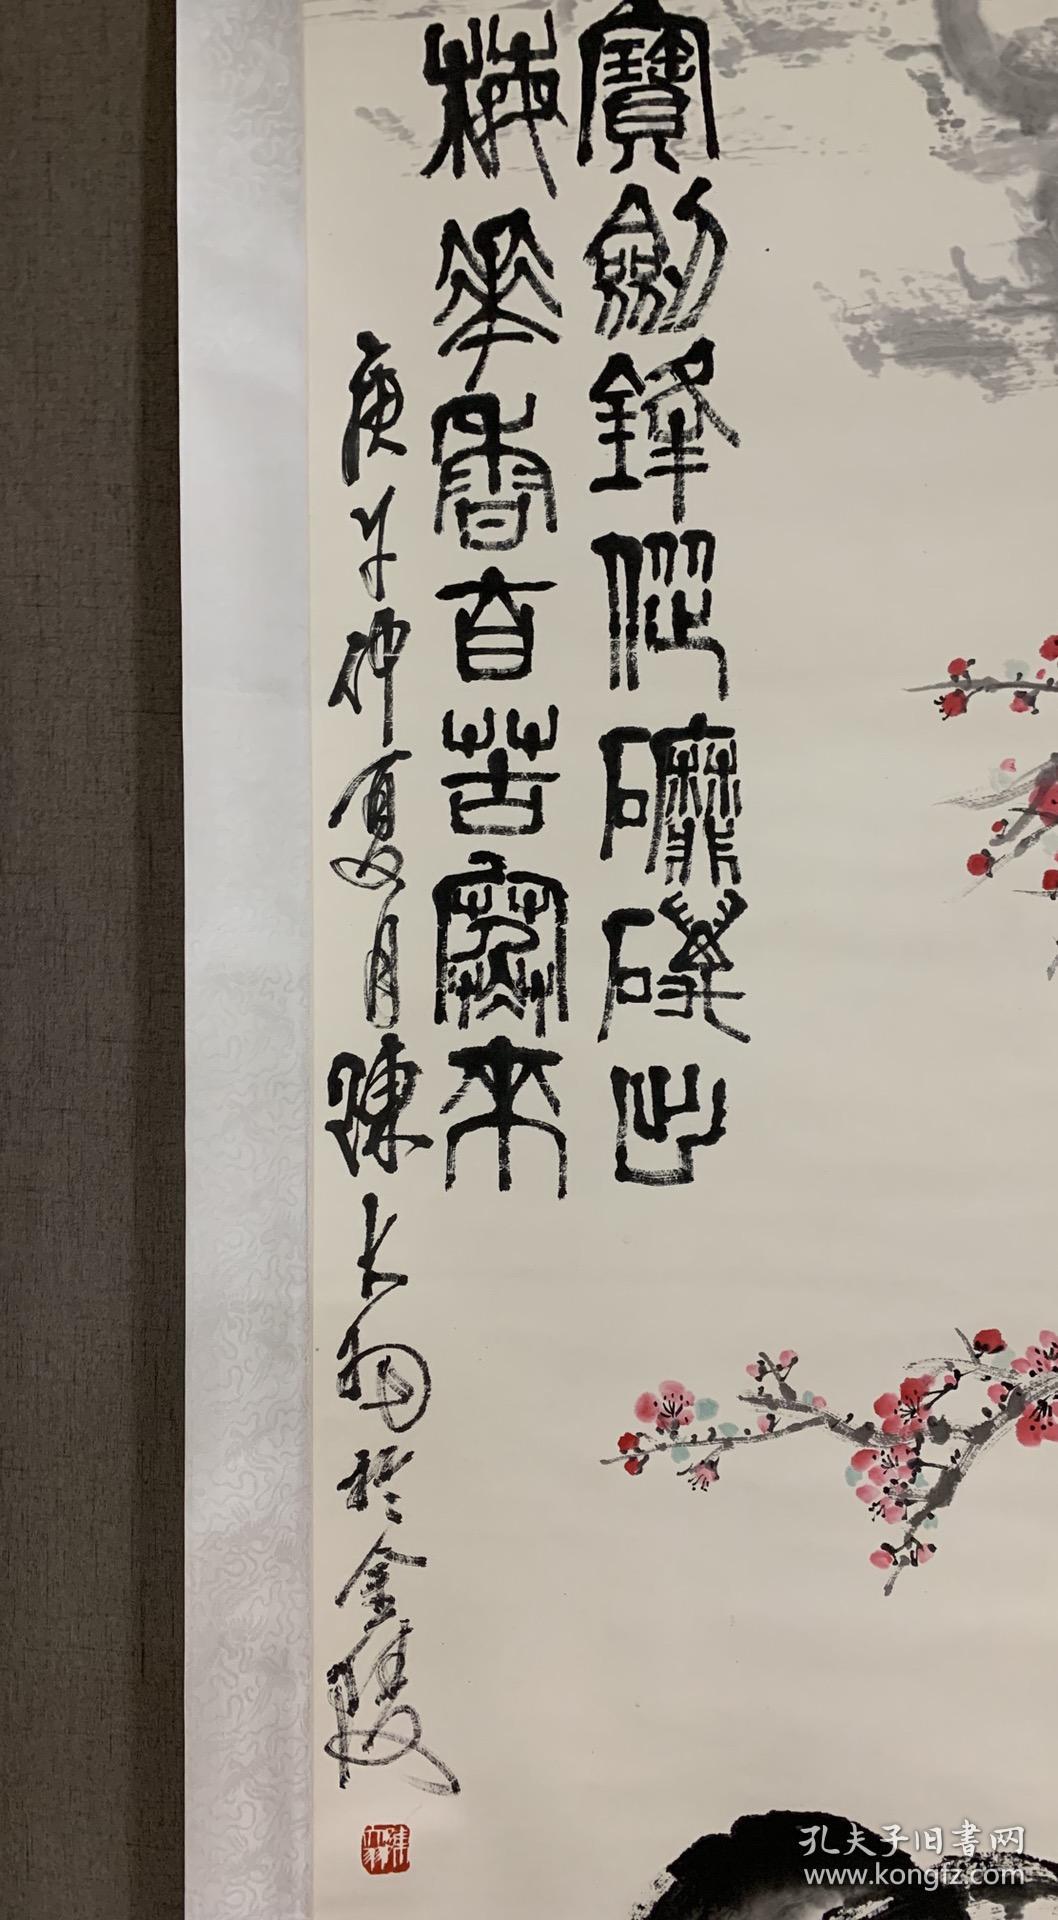 寶劍鋒從磨礪出
梅花香自苦寒來
庚午仲夏月陳大羽於金陵
陳大羽
孔夫子旧書网
www.kongfz.com